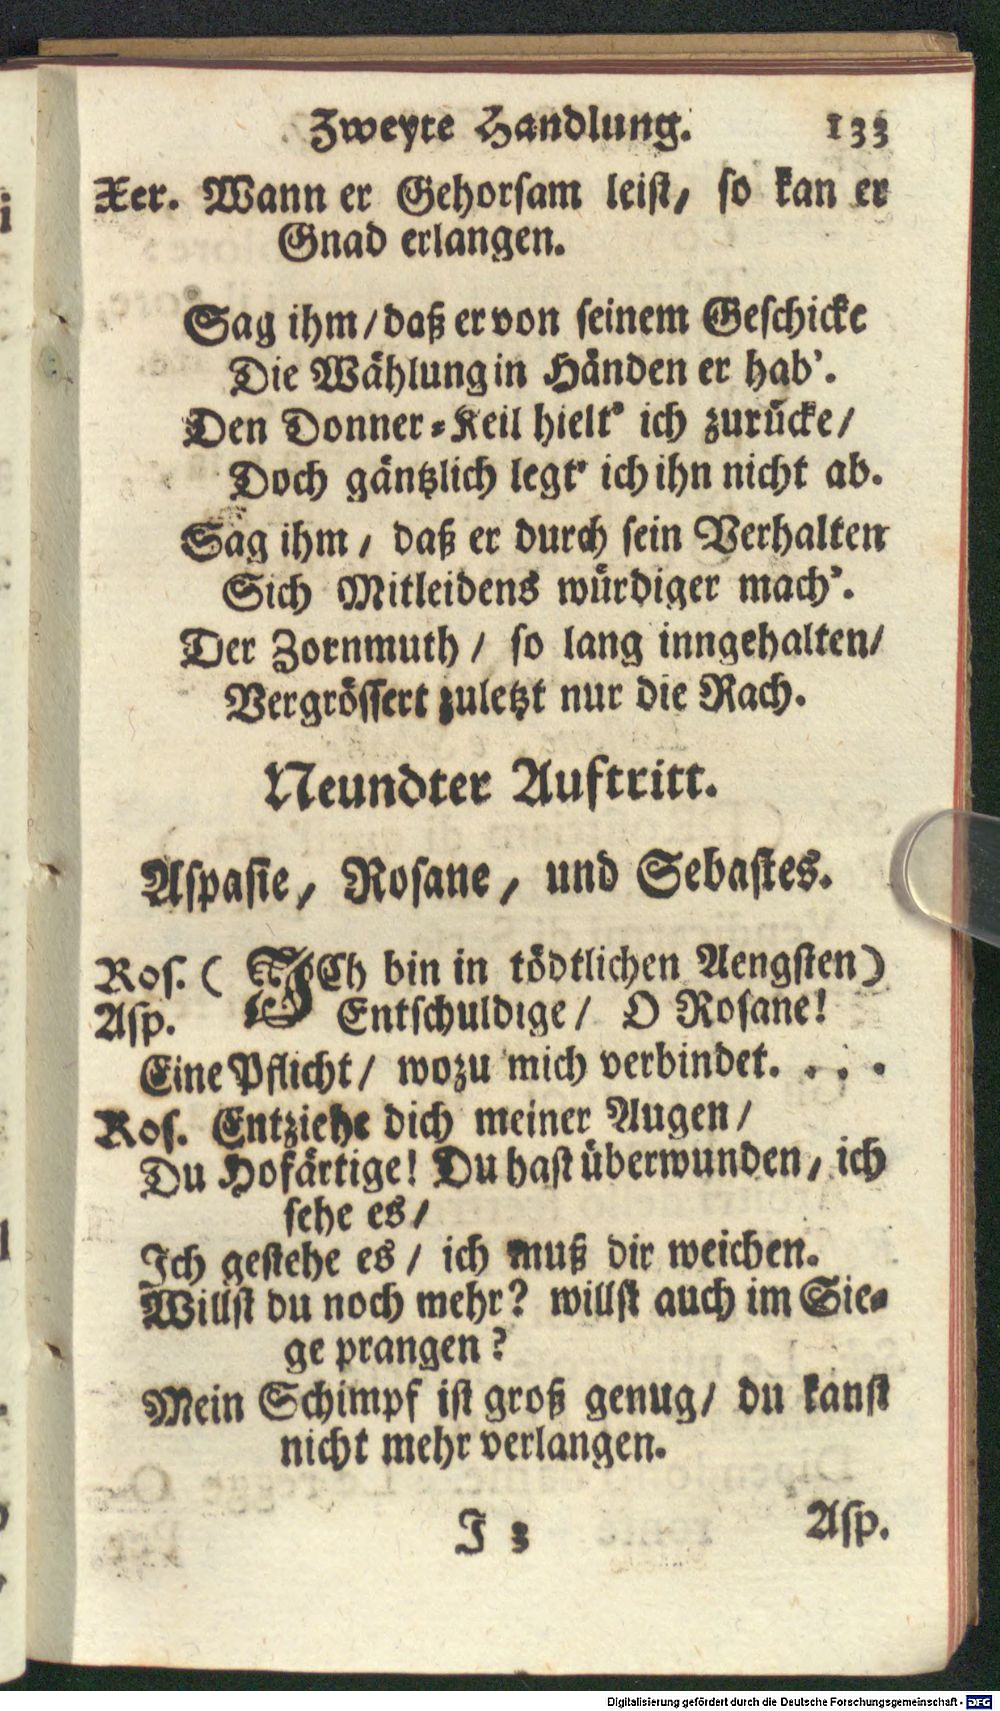 Zweyte Handlung. 133
Xer. Wann er Gehorsam leist, so kan er
Gnad erlangen.
Sag ihm/daß er von seinem Geschicke
Die Wählung in Händen er hab'.
Den Donner-Keil hielt' ich zurücke/
Doch gäntzlich legt' ich ihn nicht ab.
Sag ihm/ daß er durch sein Verhalten
Sich Mitleidens würdiger mach'.
Der Zornmuth/ so lang inngehalten/
Vergrössert zuletzt nur die Rach.
Neundter Auftritt.
Aspasie, Rosane, und Sebastes.
Ros. ( ICh bin in tödtlichen Aengsten)
Asp. Entschuldige/ O Rosane!
Eine Pflicht/ wozu mich verbindet. . . .
Ros. Entziehe dich meiner Augen/
Du Hofärtige! Du hast überwunden, ich
sehe es/
Ich gestehe es/ ich muß dir weichen.
Willst du noch mehr? willst auch im Sie-
ge prangen?
Mein Schimpf ist groß genug/ du kanst
nicht mehr verlangen.
I 3 Asp.
Digitalisierung gefördert durch die Deutsche Forschungsgemeinschaft - DFG